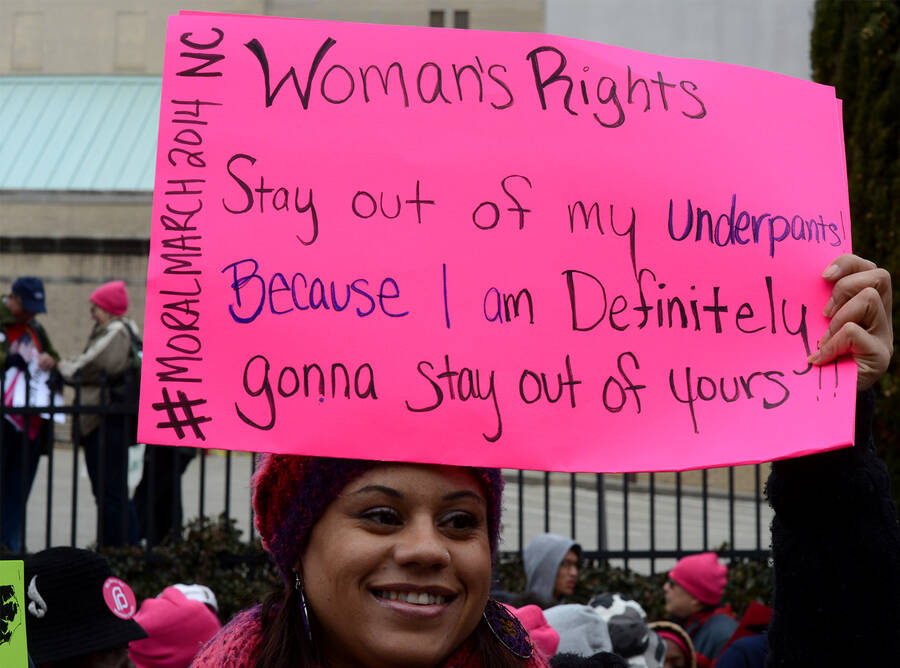 #MORALMARCH2014 NC
Woman's Rights
Stay out of my Underpants!
Because I am Definitely
gonna stay out of yours!!